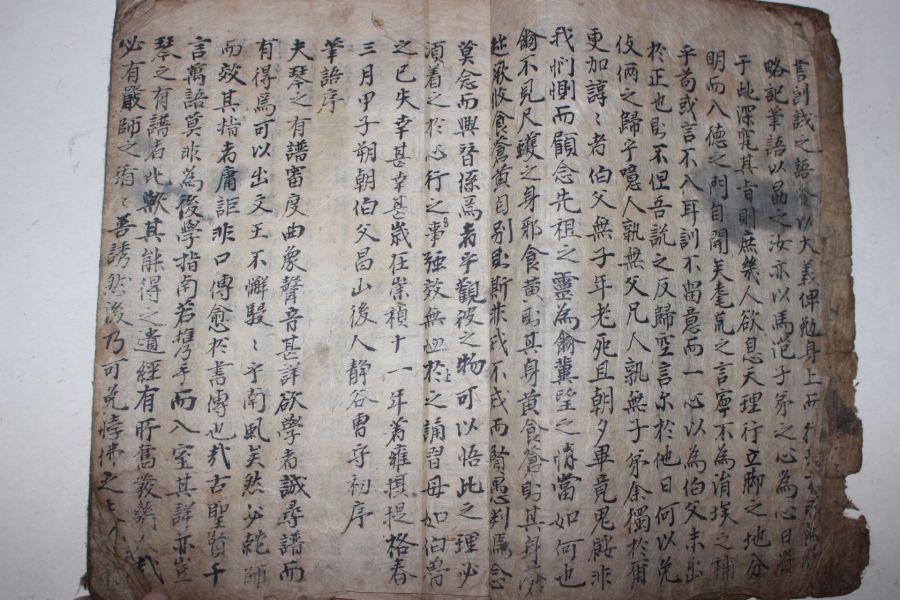 書訓戒之語 以大義俾勉身上而行
略記筆語以勗之汝亦以馬范子弟之心為心日省
于此深究其旨則庶幾人欲息天理行立脚之地分
明而入德之門自開矣耄荒之言寧不為涓埃之補
乎苟或言不入耳訓不留意而一心以為伯父未出
於正也則不但吾說之反歸空言尔於他日何以免
伎倆之歸乎噫人孰無父兄人孰無子弟余獨於爾
更加諄〻者伯父無子年老死且朝夕畢竟鬼餒非
我們惻而顧念先祖之靈為爾冀望之情當如何也
爾不見尺蠖之身耶食黃則其身黃食蒼則其身蒼
食蒼黃自別則斯非戒不戒而賢愚判焉念
莫念而興替係焉者乎觀彼之物可以悟此之理必
須着之於心行之事 效無 於之誦習毋如伯魯
之已失幸甚幸甚歲在崇禎十一年著雍攝提格春
三月甲子朔朝伯父昌山後人靜谷曺 序
筆語序
夫琴之有譜審度曲象聲音甚詳欲學者誠尋譜而
有得焉可以出文王不懈 〻乎南風矣然必 師
而效其指者庸詎非口傳愈於書傳也哉古聖賢千
言萬語莫非為後學指南若 乎而入室其詳亦豈
琴之有譜者此歟其能得之遺經有所奮發幾人哉
必有嚴師之 〻善誘然後乃可免悖拂之